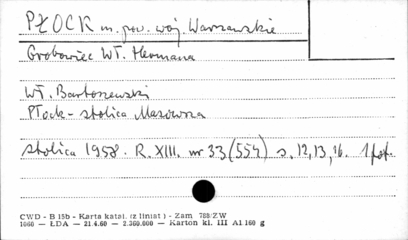 PŁOCK m. pow. woj. Warszawskie
Grobowiec Wł. Hermana
Wł. Bartoszewski
Płock - stolica Mazowsza
stolica 1958. R. XIII. nr 33 (554) s. 12, 13, 16. 1 fot.
CWD - B 15b - Karta katal. (z liniat.) - Zam 788/ZW
1060 — ŁDA — 21.4.60 — 2.360.000 — Karton kl. III A1 160 g